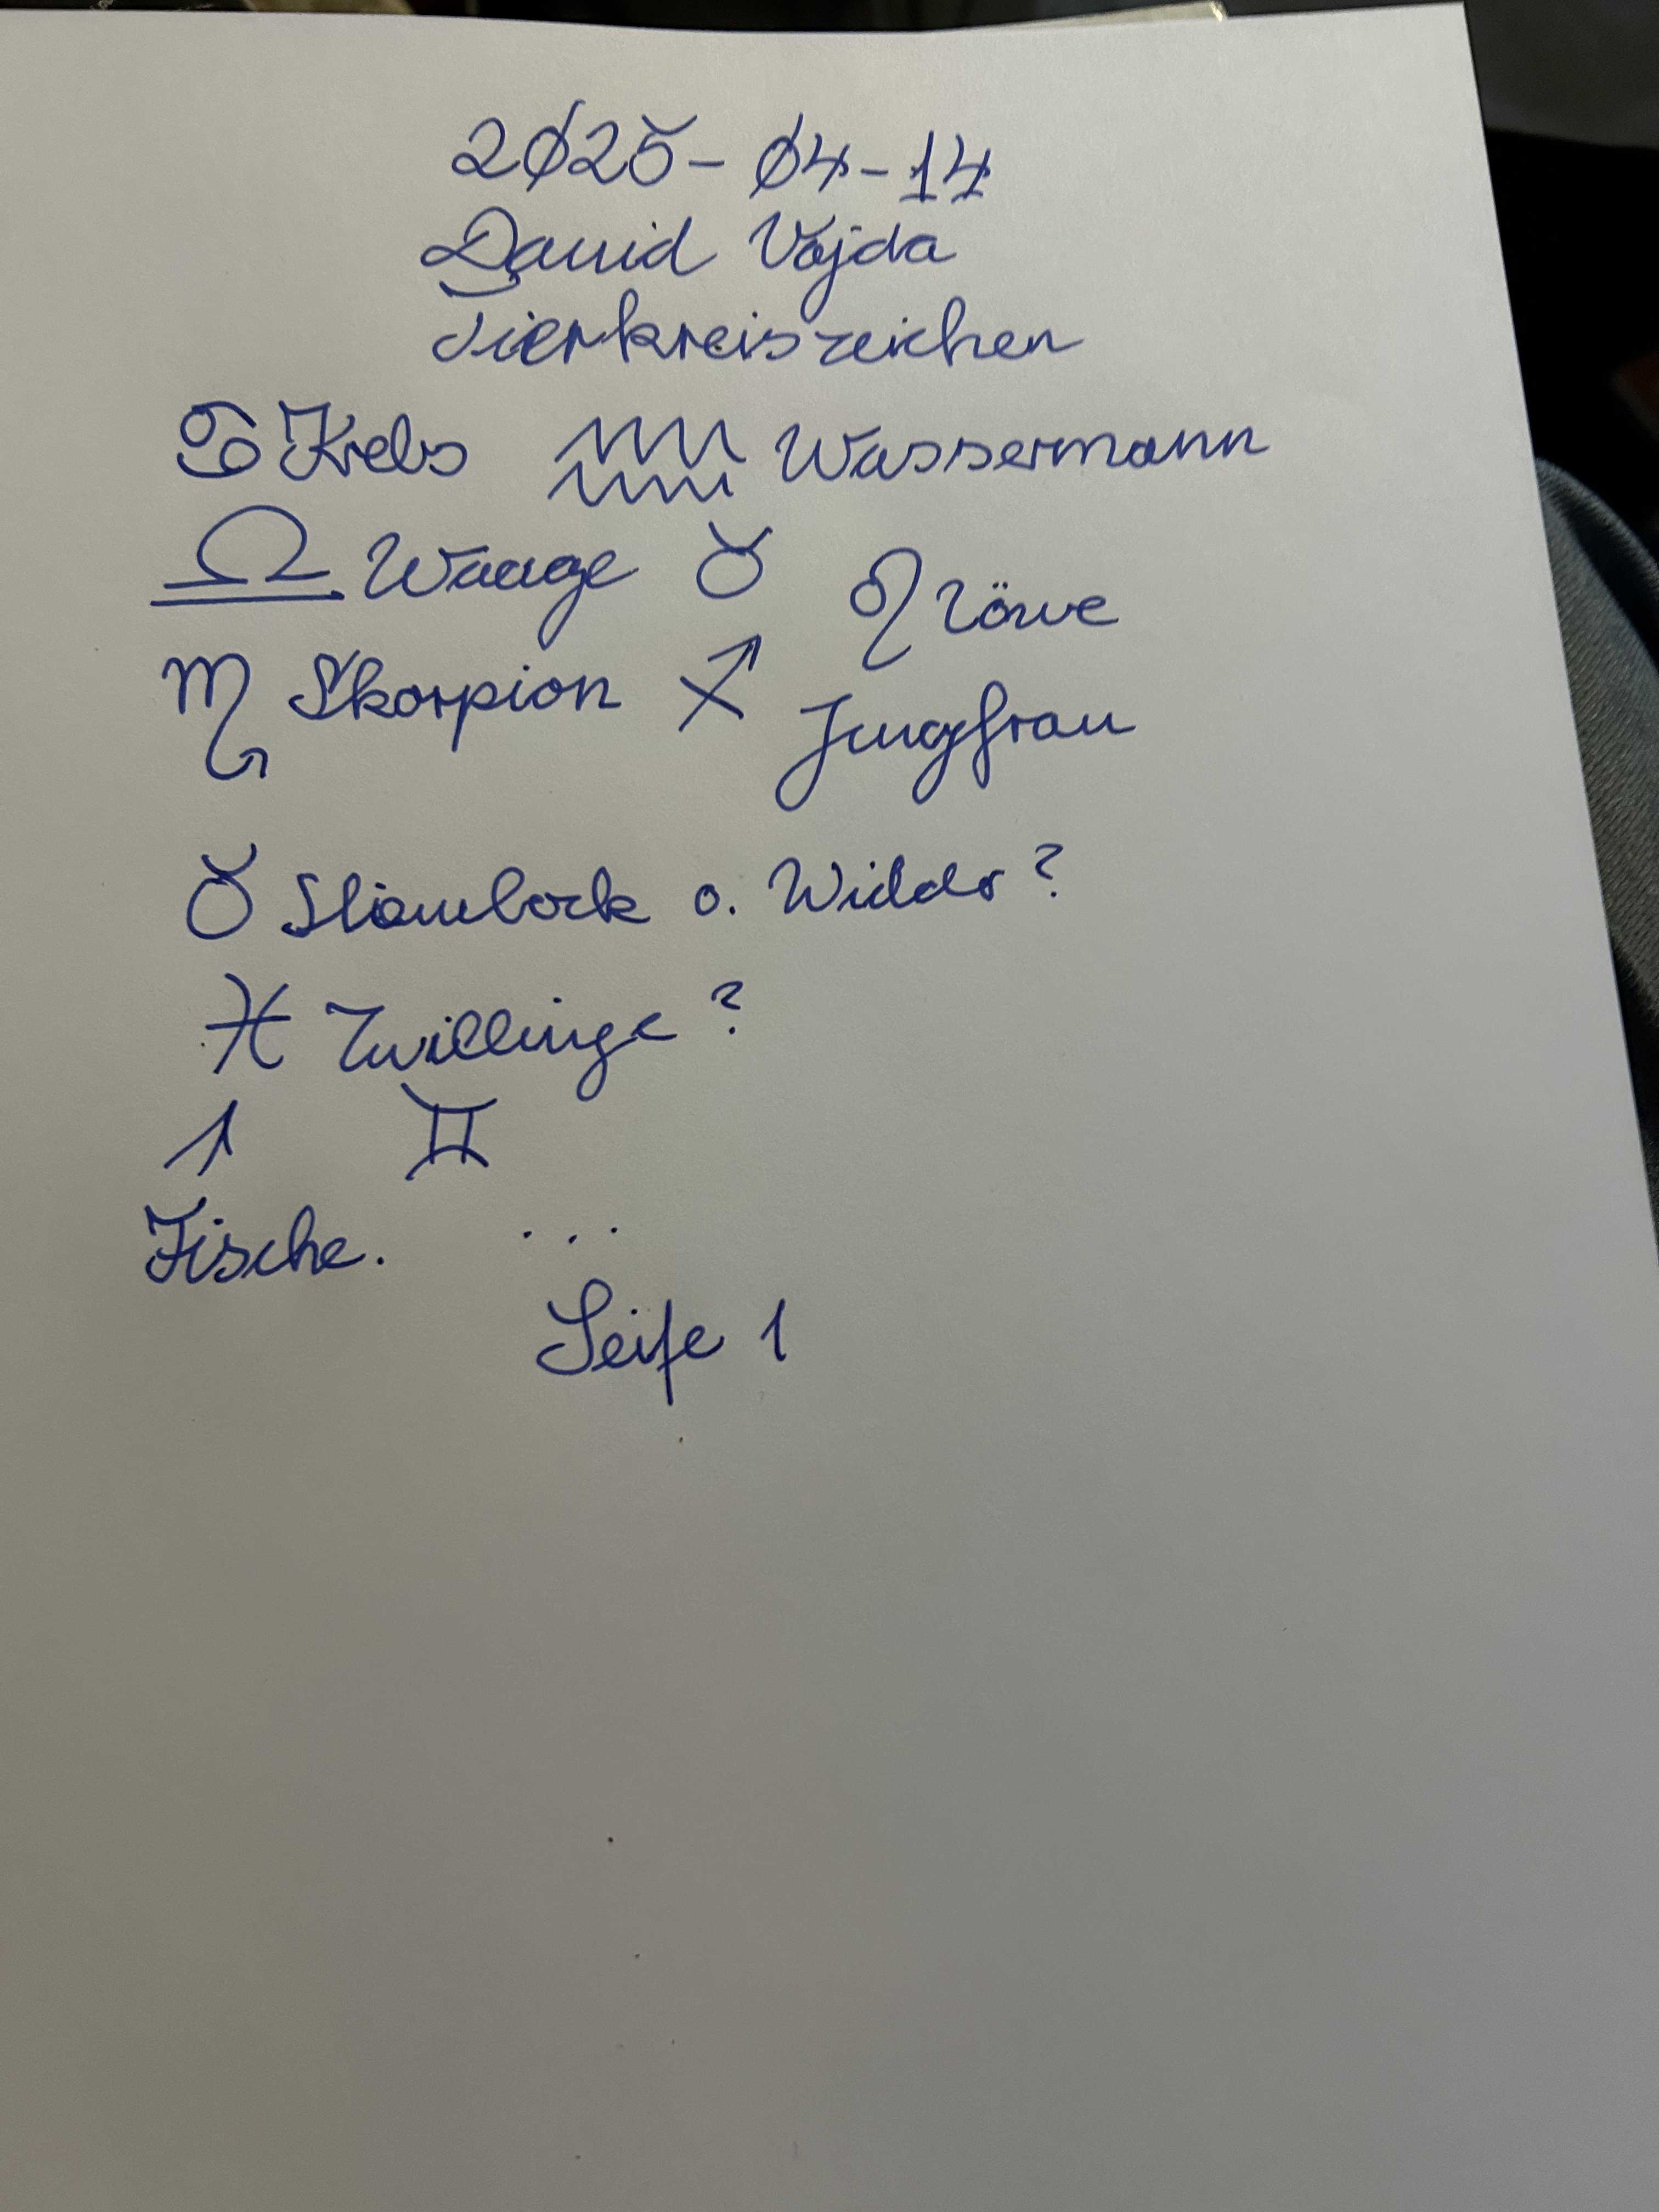 2025-04-14
David Vajda
Tierkreiszeichen
♋ Krebs ♒ Wassermann
♎ Waage ♉ ♌ Löwe
♏ Skorpion ♐ Jungfrau
♉ o. Widder?
♓ Zwillinge?
↑ ♊
Fische. ...
Seite 1